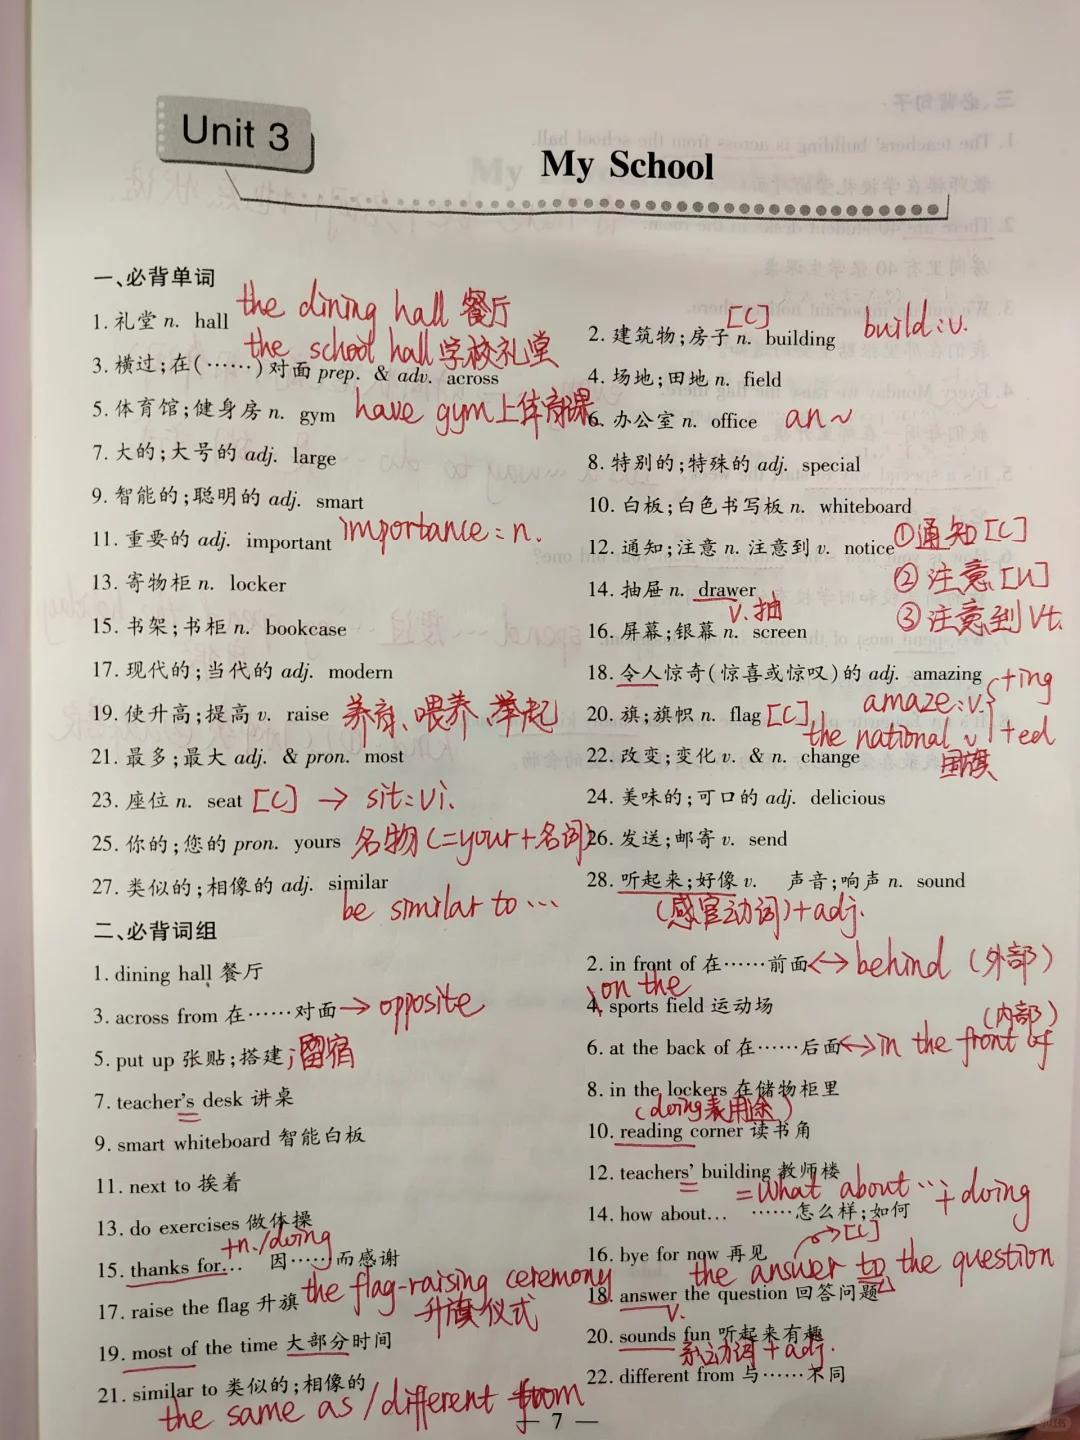 Unit 3
My School
一、必背单词
the dining hall 餐厅
1. 礼堂 n. hall
the school hall 学校礼堂
2. 建筑物;房子 n. building [C] build:v.
3. 横过;在(……)对面 prep. & adv. across
4. 场地;田地 n. field
5. 体育馆;健身房 n. gym have gym 上体育课
6. 办公室 n. office an~
7. 大的;大号的 adj. large
8. 特别的;特殊的 adj. special
9. 智能的;聪明的 adj. smart
10. 白板;白色书写板 n. whiteboard
11. 重要的 adj. important importance:n.
12. 通知;注意 n. 注意到 v. notice ①通知[C]
②注意[U]
③注意到 Vt.
13. 寄物柜 n. locker
14. 抽屉 n. drawer
v.抽
15. 书架;书柜 n. bookcase
16. 屏幕;银幕 n. screen
17. 现代的;当代的 adj. modern
18. 令人惊奇(惊喜或惊叹)的 adj. amazing
amaze:v. +ing
+ed
19. 使升高;提高 v. raise 养育、喂养、举起
20. 旗;旗帜 n. flag [C]
the national ~
国旗
21. 最多;最大 adj. & pron. most
22. 改变;变化 v. & n. change
23. 座位 n. seat [C] → sit:vi.
24. 美味的;可口的 adj. delicious
25. 你的;您的 pron. yours 名物(=your+名词)
26. 发送;邮寄 v. send
27. 类似的;相像的 adj. similar
be similar to …
28. 听起来;好像 v. 声音;响声 n. sound
(感官动词)+adj.
二、必背词组
1. dining hall 餐厅
2. in front of 在……前面 ↔ behind (外部)
3. across from 在……对面 → opposite
on the
4. sports field 运动场
5. put up 张贴;搭建;留宿
(内部)
6. at the back of 在……后面 ↔ in the front of
7. teacher's desk 讲桌
8. in the lockers 在储物柜里
(doing表用途)
9. smart whiteboard 智能白板
10. reading corner 读书角
11. next to 挨着
12. teachers' building 教师楼
=what about … + doing
13. do exercises 做体操
14. how about… ……怎么样;如何
+n./doing
15. thanks for… 因……而感谢
16. bye for now 再见
→[C]
the answer to the question
17. raise the flag 升旗 the flag-raising ceremony
升旗仪式
18. answer the question 回答问题
v.
19. most of the time 大部分时间
20. sounds fun 听起来有趣
系动词+adj.
21. similar to 类似的;相像的
22. different from 与……不同
the same as/different from
— 7 —